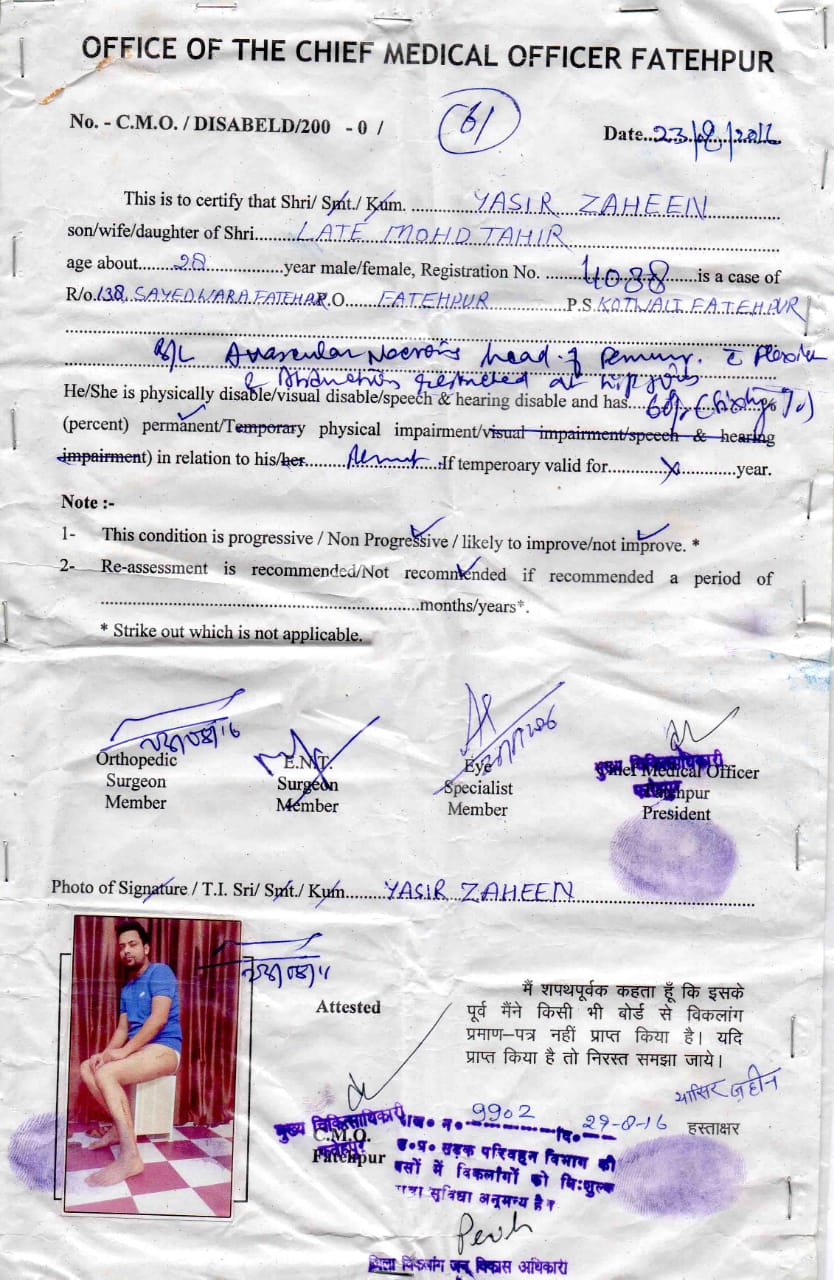 OFFICE OF THE CHIEF MEDICAL OFFICER FATEHPUR
No. - C.M.O. / DISABELD/200 - 0 / 61 Date..23/8/2016
This is to certify that Shri/ Smt./ Kum. YASIR ZAHEEN
son/wife/daughter of Shri......LATE MOHD TAHIR
age about......28......year male/female, Registration No. ......4038......is a case of
R/o.138, SAYEDWARA FATEHPUR P.O. FATEHPUR P.S. KOTWALI FATEHPUR
B/L Avascular Necrosis head of Femur. c̄ Flexion
& Abduction restricted at hip joints
He/She is physically disable/visual disable/speech & hearing disable and has...60% (Sixty %)
(percent) permanent/Temporary physical impairment/visual impairment/speech & hearing
impairment) in relation to his/her......If temperoary valid for......X......year.
Note :-
1- This condition is progressive / Non Progressive / likely to improve/not improve. *
2- Re-assessment is recommended/Not recommended if recommended a period of
......months/years*.
* Strike out which is not applicable.
Orthopedic Surgeon Member
E.N.T. Surgeon Member
Eye Specialist Member
मुख्य चिकित्साधिकारी
फतेहपुर
Chief Medical Officer Fatehpur President
Photo of Signature / T.I. Sri/ Smt./ Kum......YASIR ZAHEEN
Attested
मैं शपथपूर्वक कहता हूँ कि इसके
पूर्व मैंने किसी भी बोर्ड से विकलांग
प्रमाण–पत्र नहीं प्राप्त किया है। यदि
प्राप्त किया है तो निरस्त समझा जाये।
यासिर ज़हीन
हस्ताक्षर
मुख्य चिकित्साधिकारी
C.M.O.
फतेहपुर
Fatehpur
न० 9902 दि० 29-8-16
उ.प्र. सड़क परिवहन विभाग की
बसों में विकलांगों को निःशुल्क
यात्रा सुविधा अनुमन्य है।
जिला विकलांग जन विकास अधिकारी